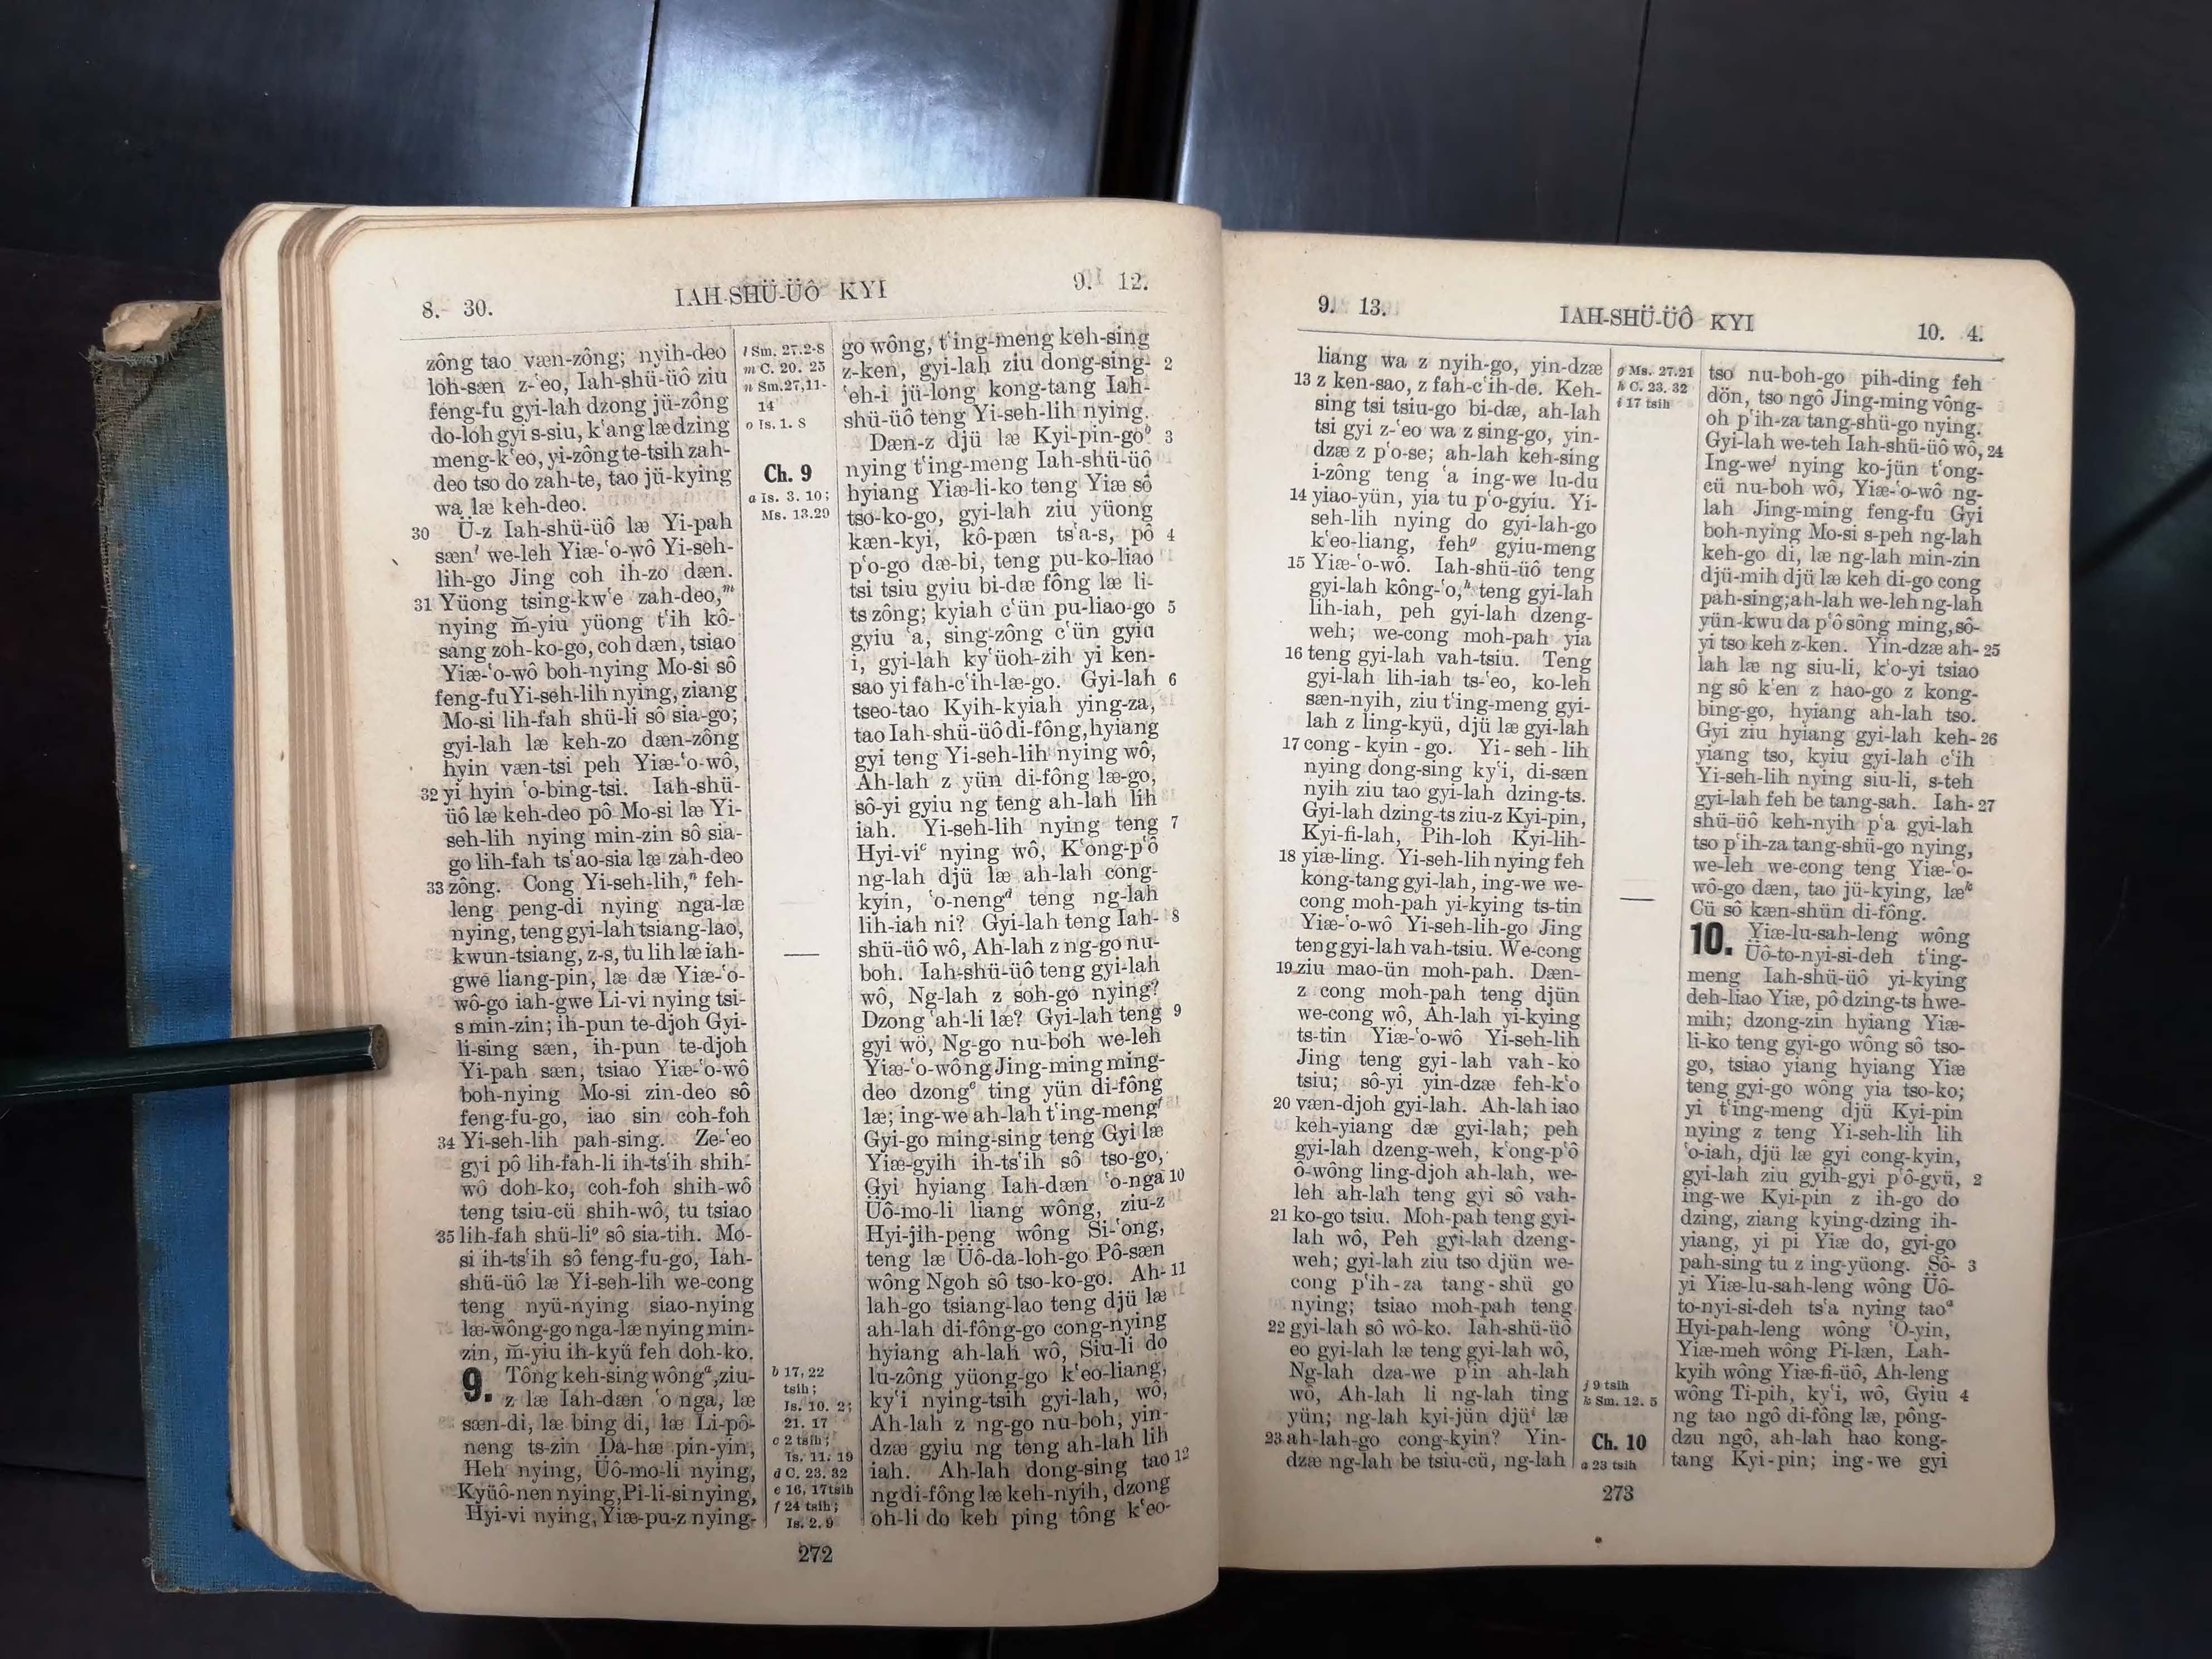 8. 30.
IAH-SHÜ-ÜÔ KYI
9. 12.
zông tao væn-zông; nyih-deo
loh-sæn z-ʻeo, Iah-shü-üô ziu
feng-fu gyi-lah dzong jü-zông
do-loh gyi s-siu, kʻang læ dzing
meng-kʻeo, yi-zông te-tsih zah-
deo tso do zah-te, tao jü-kying
wa læ keh-deo.
30 Ü-z Iah-shü-üô læ Yi-pah
sæn l we-leh Yiæ-ʻo-wô Yi-seh-
lih-go Jing coh ih-zo dæn.
31 Yüong tsing-kwʻe zah-deo, m
nying m̆-yiu yüong tʻih kô-
sang zoh-ko-go, coh dæn, tsiao
Yiæ-ʻo-wô boh-nying Mo-si sô
feng-fu Yi-seh-lih nying, ziang
Mo-si lih-fah shü-li sô sia-go;
gyi-lah læ keh-zo dæn-zông
hyin væn-tsi peh Yiæ-ʻo-wô,
32 yi hyin ʻo-bing-tsi. Iah-shü-
üô læ keh-deo pô Mo-si læ Yi-
seh-lih nying min-zin sô sia-
go lih-fah tsʻao-sia læ zah-deo
33 zông. Cong Yi-seh-lih, n feh-
leng peng-di nying nga-læ
nying, teng gyi-lah tsiang-lao,
kwun-tsiang, z-s, tu lih læ iah-
gwe liang-pin, læ dæ Yiæ-ʻo-
wô-go iah-gwe Li-vi nying tsi-
s min-zin; ih-pun te-djoh Gyi-
li-sing sæn, ih-pun te-djoh
Yi-pah sæn, tsiao Yiæ-ʻo-wô
boh-nying Mo-si zin-deo sô
feng-fu-go, iao sin coh-foh
34 Yi-seh-lih pah-sing. Ze-ʻeo
gyi pô lih-fah-li ih-tsʻih shih-
wô doh-ko, coh-foh shih-wô
teng tsiu-cü shih-wô, tu tsiao
35 lih-fah shü-li o sô sia-tih. Mo-
si ih-tsʻih sô feng-fu-go, Iah-
shü-üô læ Yi-seh-lih we-cong
teng nyü-nying siao-nying
læ-wông-go nga-læ nying min-
zin, m̆-yiu ih-kyü feh doh-ko.
9. Tông keh-sing wông a, ziu-
z læ Iah-dæn ʻo nga, læ
sæn-di, læ bing di, læ Li-pô-
neng ts-zin Da-hæ pin-yin,
Heh nying, Üô-mo-li nying,
Kyüô-nen nying, Pi-li-si nying,
Hyi-vi nying, Yiæ-pu-z nying-
l Sm. 27.2-8
m C. 20. 25
n Sm. 27, 11-
14
o Is. 1. 8
Ch. 9
a Is. 3. 10;
Ms. 13.29
b 17, 22
tsih;
Is. 10. 2;
21. 17
c 2 tsih;
Is. 11. 19
d C. 23. 32
e 16, 17 tsih
f 24 tsih;
Is. 2. 9
go wông, tʻing-meng keh-sing
z-ken, gyi-lah ziu dong-sing- 2
ʻeh-i jü-long kong-tang Iah-
shü-üô teng Yi-seh-lih nying.
Dæn-z djü læ Kyi-pin-go b 3
nying tʻing-meng Iah-shü-üô
hyiang Yiæ-li-ko teng Yiæ sô
tso-ko-go, gyi-lah ziu yüong
kæn-kyi, kô-pæn tsʻa-s, pô 4
pʻo-go dæ-bi, teng pu-ko-liao
tsi tsiu gyiu bi-dæ fông læ li-
ts zông; kyiah cʻün pu-liao-go 5
gyiu ʻa, sing-zông cʻün gyiu
i, gyi-lah kyʻüoh-zih yi ken-
sao yi fah-cʻih-læ-go. Gyi-lah 6
tseo-tao Kyih-kyiah ying-za,
tao Iah-shü-üô di-fông, hyiang
gyi teng Yi-seh-lih nying wô,
Ah-lah z yün di-fông læ-go,
sô-yi gyiu ng teng ah-lah lih
iah. Yi-seh-lih nying teng 7
Hyi-vi c nying wô, Kʻong-pʻô
ng-lah djü læ ah-lah cong-
kyin, ʻo-neng d teng ng-lah
lih-iah ni? Gyi-lah teng Iah- 8
shü-üô wô, Ah-lah z ng-go nu-
boh. Iah-shü-üô teng gyi-lah
wô, Ng-lah z soh-go nying?
Dzong ʻah-li læ? Gyi-lah teng 9
gyi wô, Ng-go nu-boh we-leh
Yiæ-ʻo-wô ng Jing-ming ming-
deo dzong e ting yün di-fông
læ; ing-we ah-lah tʻing-meng f
Gyi-go ming-sing teng Gyi læ
Yiæ-gyih ih-tsʻih sô tso-go,
Gyi hyiang Iah-dæn ʻo-nga 10
Üô-mo-li liang wông, ziu-z
Hyi-jih-peng wông Si-ʻong,
teng læ Üô-da-loh-go Pô-sæn
wông Ngoh sô tso-ko-go. Ah- 11
lah-go tsiang-lao teng djü læ
ah-lah di-fông-go cong-nying
hyiang ah-lah wô, Siu-li do
lu-zông yüong-go kʻeo-liang,
kyʻi nying-tsih gyi-lah, wô,
Ah-lah z ng-go nu-boh, yin-
dzæ gyiu ng teng ah-lah lih
iah. Ah-lah dong-sing tao 12
ng di-fông læ keh-nyih, dzong
oh-li do keh ping tông kʻeo-
272
9. 13.
IAH-SHÜ-ÜÔ KYI
10. 4.
liang wa z nyih-go, yin-dzæ
13 z ken-sao, z fah-cʻih-de. Keh-
sing tsi tsiu-go bi-dæ, ah-lah
tsi gyi z-ʻeo wa z sing-go, yin-
dzæ z pʻo-se; ah-lah keh-sing
i-zông teng ʻa ing-we lu-du
14 yiao-yün, yia tu pʻo-gyiu. Yi-
seh-lih nying do gyi-lah-go
kʻeo-liang, feh g gyiu-meng
15 Yiæ-ʻo-wô. Iah-shü-üô teng
gyi-lah kông-ʻo, h teng gyi-lah
lih-iah, peh gyi-lah dzeng-
weh; we-cong moh-pah yia
16 teng gyi-lah vah-tsiu. Teng
gyi-lah lih-iah ts-ʻeo, ko-leh
sæn-nyih, ziu tʻing-meng gyi-
lah z ling-kyü, djü læ gyi-lah
17 cong-kyin-go. Yi-seh-lih
nying dong-sing kyʻi, di-sæn
nyih ziu tao gyi-lah dzing-ts.
Gyi-lah dzing-ts ziu-z Kyi-pin,
Kyi-fi-lah, Pih-loh Kyi-lih-
18 yiæ-ling. Yi-seh-lih nying feh
kong-tang gyi-lah, ing-we we-
cong moh-pah yi-kying ts-tin
Yiæ-ʻo-wô Yi-seh-lih-go Jing
teng gyi-lah vah-tsiu. We-cong
19 ziu mao-ün moh-pah. Dæn-
z cong moh-pah teng djün
we-cong wô, Ah-lah yi-kying
ts-tin Yiæ-ʻo-wô Yi-seh-lih
Jing teng gyi-lah vah-ko
tsiu; sô-yi yin-dzæ feh-kʻo
20 væn-djoh gyi-lah. Ah-lah iao
keh-yiang dæ gyi-lah; peh
gyi-lah dzeng-weh, kʻong-pʻô
ô-wông ling-djoh ah-lah, we-
leh ah-lah teng gyi sô vah-
21 ko-go tsiu. Moh-pah teng gyi-
lah wô, Peh gyi-lah dzeng-
weh; gyi-lah ziu tso djün we-
cong pʻih-za tang-shü go
nying; tsiao moh-pah teng
22 gyi-lah sô wô-ko. Iah-shü-üô
eo gyi-lah læ teng gyi-lah wô,
Ng-lah dza-we pʻin ah-lah
wô, Ah-lah li ng-lah ting
yün; ng-lah kyi-jün djü i læ
23 ah-lah-go cong-kyin? Yin-
dzæ ng-lah be tsiu-cü, ng-lah
g Ms. 27.21
h C. 23. 32
i 17 tsih
j 9 tsih
k Sm. 12. 5
Ch. 10
a 23 tsih
tso nu-boh-go pih-ding feh
dön, tso ngô Jing-ming vông-
oh pʻih-za tang-shü-go nying.
Gyi-lah we-teh Iah-shü-üô wô, 24
Ing-we j nying ko-jün tʻong-
cü nu-boh wô, Yiæ-ʻo-wô ng-
lah Jing-ming feng-fu Gyi
boh-nying Mo-si s-peh ng-lah
keh-go di, læ ng-lah min-zin
djü-mih djü læ keh di-go cong
pah-sing; ah-lah we-leh ng-lah
yün-kwu da pʻô sông ming, sô-
yi tso keh z-ken. Yin-dzæ ah- 25
lah læ ng siu-li, kʻo-yi tsiao
ng sô kʻen z hao-go z kong-
bing-go, hyiang ah-lah tso.
Gyi ziu hyiang gyi-lah keh- 26
yiang tso, kyiu gyi-lah cʻih
Yi-seh-lih nying siu-li, s-teh
gyi-lah feh be tang-sah. Iah- 27
shü-üô keh-nyih pʻa gyi-lah
tso pʻih-za tang-shü-go nying,
we-leh we-cong teng Yiæ-ʻo-
wô-go dæn, tao jü-kying, læ k
Cü sô kæn-shün di-fông.
10. Yiæ-lu-sah-leng wông
Üô-to-nyi-si-deh tʻing-
meng Iah-shü-üô yi-kying
deh-liao Yiæ, pô dzing-ts hwe-
mih; dzong-zin hyiang Yiæ-
li-ko teng gyi-go wông sô tso-
go, tsiao yiang hyiang Yiæ
teng gyi-go wông yia tso-ko;
yi tʻing-meng djü Kyi-pin
nying z teng Yi-seh-lih lih
ʻo-iah, djü læ gyi cong-kyin,
gyi-lah ziu gyih-gyi pʻô-gyü, 2
ing-we Kyi-pin z ih-go do
dzing, ziang kying-dzing ih-
yiang, yi pi Yiæ do, gyi-go
pah-sing tu z ing-yüong. Sô- 3
yi Yiæ-lu-sah-leng wông Üô-
to-nyi-si-deh tsʻa nying tao a
Hyi-pah-leng wông ʻO-yin,
Yiæ-meh wông Pi-læn, Lah-
kyih wông Yiæ-fi-üô, Ah-leng
wông Ti-pih, kyʻi, wô, Gyiu 4
ng tao ngô di-fông læ, pông-
dzu ngô, ah-lah hao kong-
tang Kyi-pin; ing-we gyi
273